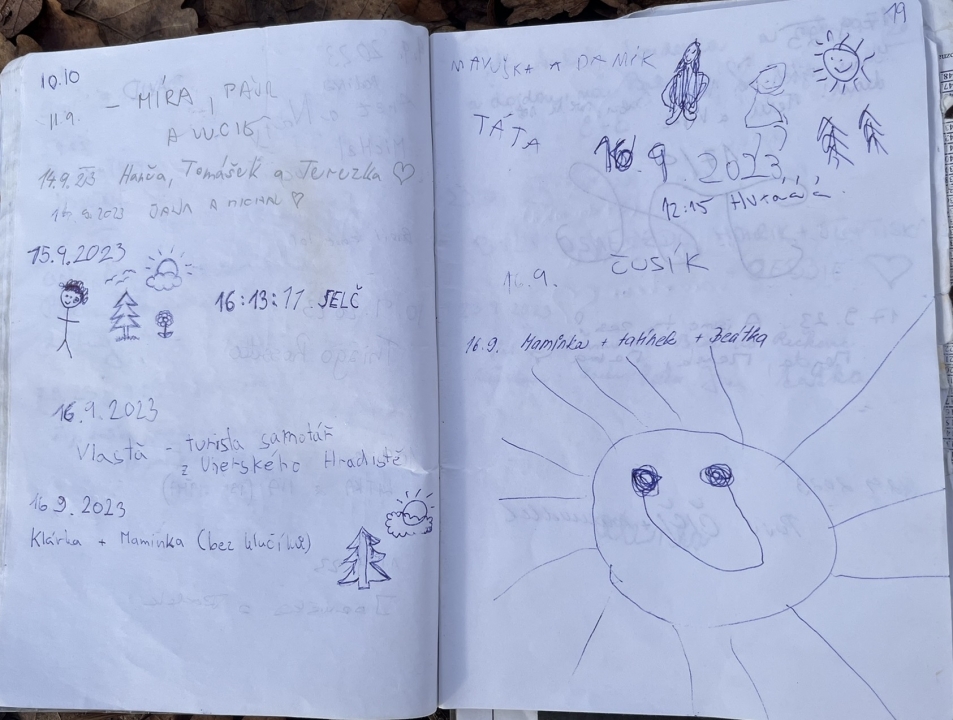 10.10
- MÍRA, PÁJA
11.9.
A VUCIK
14.9.23 Hanča, Tomášek a Terezka ♡
JANA A MICHAL ♡
15.9.2023
16:13:11 SELČ
16.9.2023
Vlasťa - turista samotář
z Uherského Hradiště
16 9. 2023
Klárka + Maminka (bez klučíků)
19
A DANÍK
TÁTA
16.9 2023
12:15 Hurááá
ČUSÍK
16.9.
16.9. Maminka + tatínek + Beátka